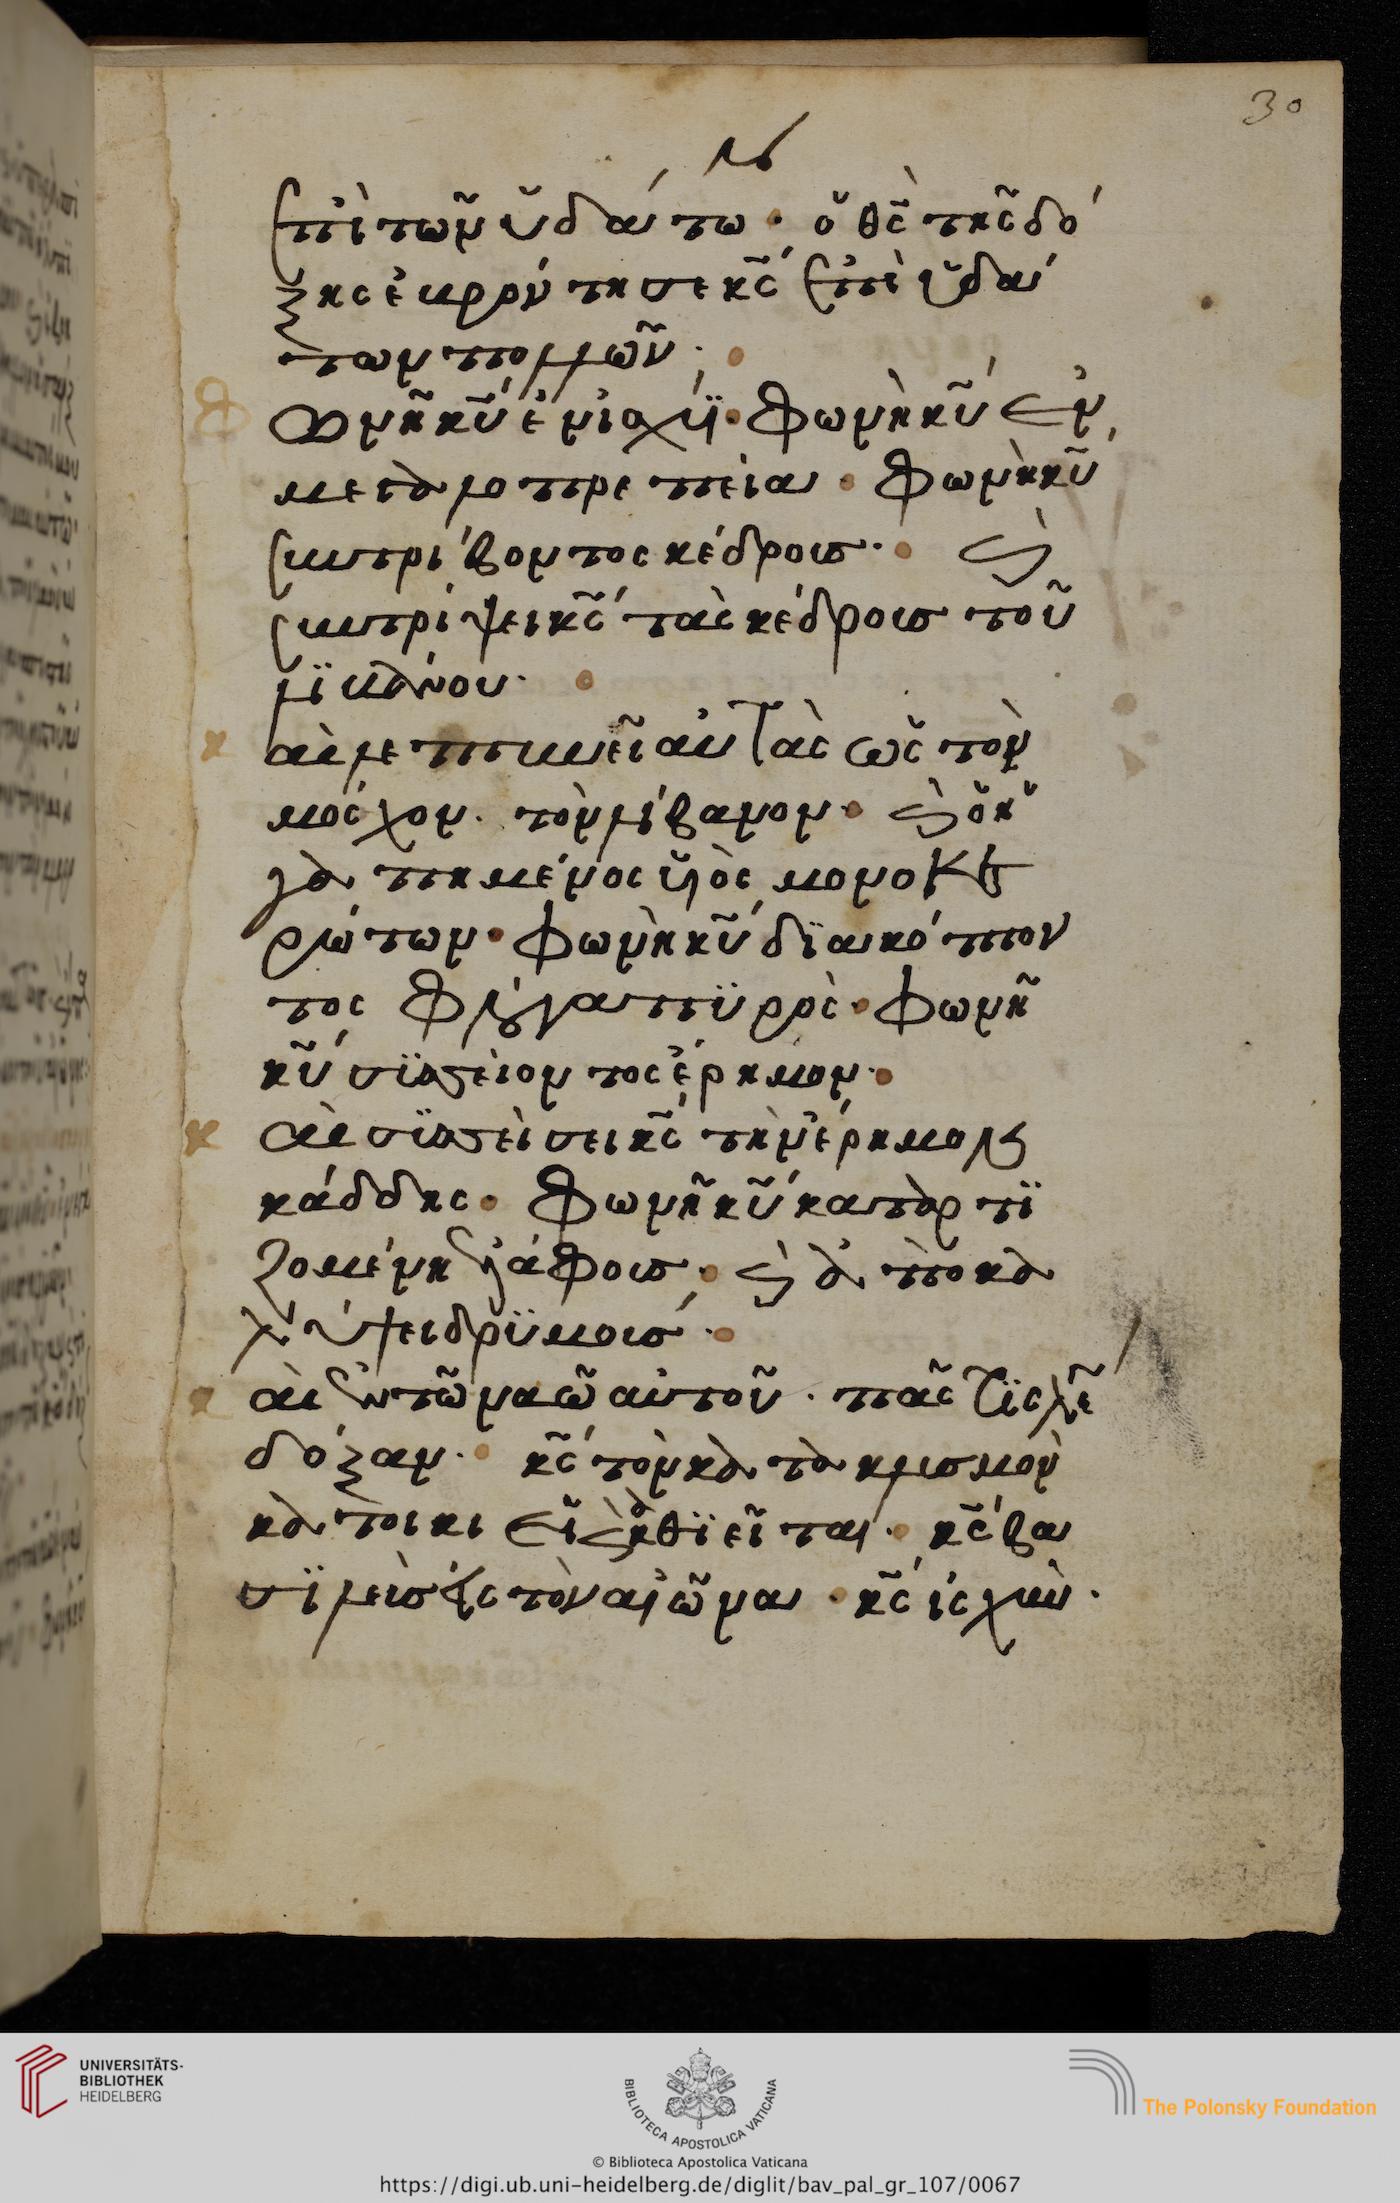 30
ἐπὶ τῶν ὑδάτω· ὁ θς τῆς δό
ξης ἐβρόντησε κς ἐπὶ ὑδά
των πολλῶν·
Φωνὴ κυ ἐν ἰσχύϊ· φωνὴ κυ ἐν
μεγαλοπρεπεία· φωνὴ κυ
συντρίβοντος κέδρους· ϗ
συντρίψει κς τὰς κέδρους τοῦ
λϊβάνου·
κ αὶ λεπτυνεῖ αὐτὰς ὡς τὸν
μόσχον· τὸν λίβανον· ϗ ὁ ἠ
γαπημένος ϋἱὸς μονοκε
ρώτων· φωνὴ κυ δϊακόπτον
τος φλόγα πϋρός· φωνὴ
κυ σϋσσείοντος ἔρημον·
κ αὶ σϋσσείσει κς τὴν ἔρημον
κάδδης· φωνὴ κυ καταρτϊ
ζομένη ἐλάφους· ϗ ἀποκα
λύψει δρϋμούς·
κ αὶ ἐν τῶ ναῶ αὐτοῦ· πᾶς τϊς λέγει
δόξαν· κς τὸν κατακλυσμὸν
κατοικιεῖ ϗ καθϊεῖται· κς βα
σϊλεὺς εἰς τὸν αἰῶνα· κς ἰσχὺν·
UNIVERSITÄTS-
BIBLIOTHEK
HEIDELBERG
BIBLIOTECA APOSTOLICA VATICANA
The Polonsky Foundation
© Biblioteca Apostolica Vaticana
https://digi.ub.uni-heidelberg.de/diglit/bav_pal_gr_107/0067